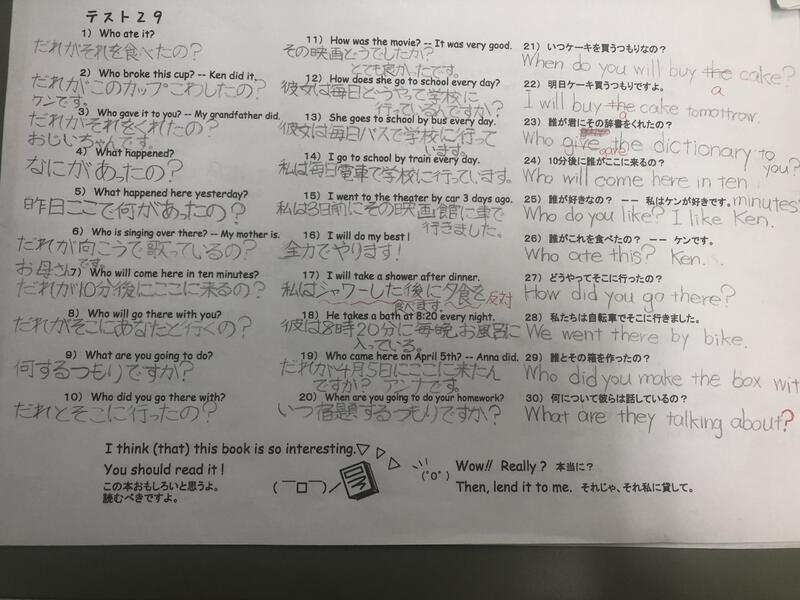 テスト29
1) Who ate it?
だれがそれを食べたの?
2) Who broke this cup? -- Ken did it.
だれがこのカップこわしたの?
ケンです。
3) Who gave it to you? -- My grandfather did.
だれがそれをくれたの?
おじいちゃんです。
4) What happened?
なにがあったの?
5) What happened here yesterday?
昨日ここで何があったの?
6) Who is singing over there? -- My mother is.
だれが向こうで歌っているの?
お母さんです。
7) Who will come here in ten minutes?
だれが10分後にここに来るの?
8) Who will go there with you?
だれがそこにあなたと行くの?
9) What are you going to do?
何するつもりですか?
10) Who did you go there with?
だれとそこに行ったの?
11) How was the movie? -- It was very good.
その映画どうでしたか?
とても良かったです。
12) How does she go to school every day?
彼女は毎日どうやって学校に
行っているんですか?
13) She goes to school by bus every day.
彼女は毎日バスで学校に行って
います。
14) I go to school by train every day.
私は毎日電車で学校に行っています。
15) I went to the theater by car 3 days ago.
私は3日前にその映画館に車で
行きました。
16) I will do my best!
全力でやります!
17) I will take a shower after dinner.
私はシャワーした後に夕食を 反対
食べます。
18) He takes a bath at 8:20 every night.
彼は8時20分に毎晩お風呂に
入っている。
19) Who came here on April 5th? -- Anna did.
だれが4月5日にここに来たん
ですか? アンナです。
20) When are you going to do your homework?
いつ宿題するつもりですか?
21) いつケーキを買うつもりなの?
When do you will buy the cake?
a
22) 明日ケーキ買うつもりですよ。
I will buy the cake tomorrow.
a
23) 誰が君にその辞書をくれたの?
Who give the dictionary to
gave you?
24) 10分後に誰がここに来るの?
Who will come here in ten
minutes?
25) 誰が好きなの? -- 私はケンが好きです。
Who do you like? I like Ken.
26) 誰がこれを食べたの? -- ケンです。
Who ate this? Ken.
27) どうやってそこに行ったの?
How did you go there?
28) 私たちは自転車でそこに行きました。
We went there by bike.
29) 誰とその箱を作ったの?
Who did you make the box wit
30) 何について彼らは話しているの?
What are they talking about?
I think (that) this book is so interesting.
You should read it!
この本おもしろいと思うよ。
読むべきですよ。
Wow!! Really? 本当に?
Then, lend it to me. それじゃ、それ私に貸して。